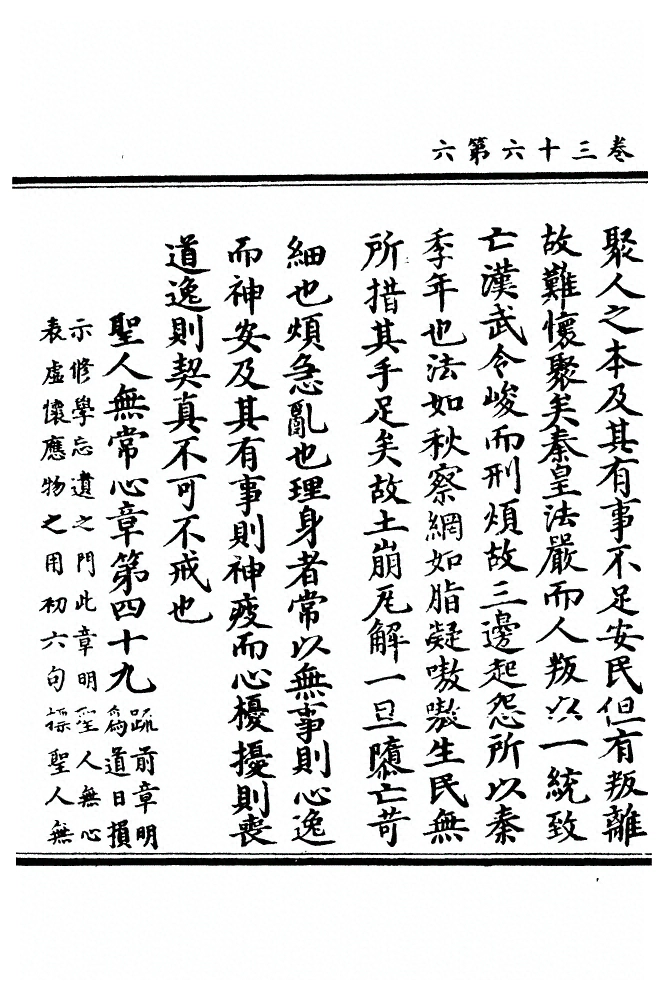 卷三十六第六
聚人之本及其有事不足安民但有叛離
故難懷聚矣秦皇法嚴而人叛以一統致
亡漢武令峻而刑煩故三邊起怨所以秦
季年也法如秋察網如脂凝嗷嗷生民無
所措其手足矣故土崩瓦解一旦隳亡苛
細也煩急亂也理身者常以無事則心逸
而神安及其有事則神疲而心擾擾則喪
道逸則契真不可不戒也
聖人無常心章第四十九
疏前章明
為道日損
示修學忘遺之門此章明聖人無心
表虛懷應物之用初六句標聖人無